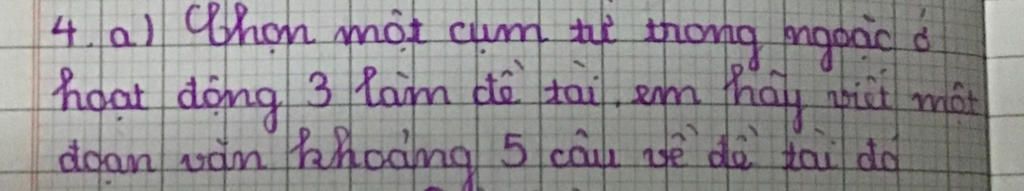 4. a) Chọn một cụm từ trong ngoặc ở
hoạt động 3 làm đề tài, em hãy viết một
đoạn văn khoảng 5 câu về đề tài đó